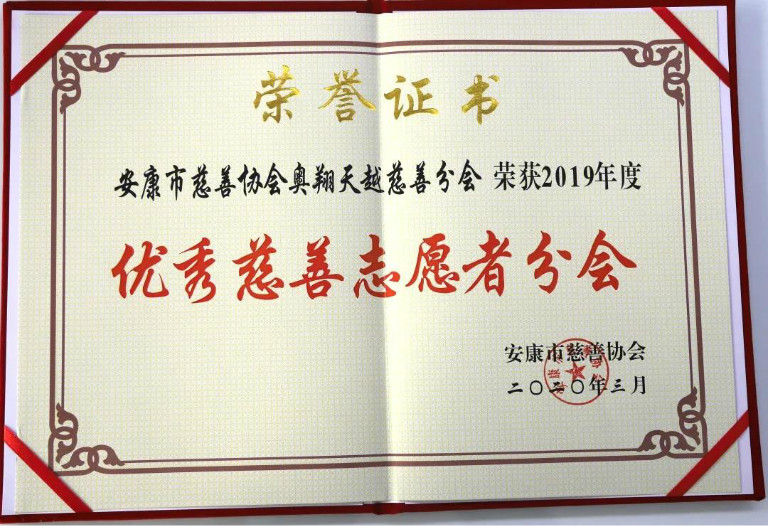 荣誉证书
安康市慈善协会奥翔天越慈善分会 荣获2019年度
优秀慈善志愿者分会
安康市慈善协会
二〇二〇年三月